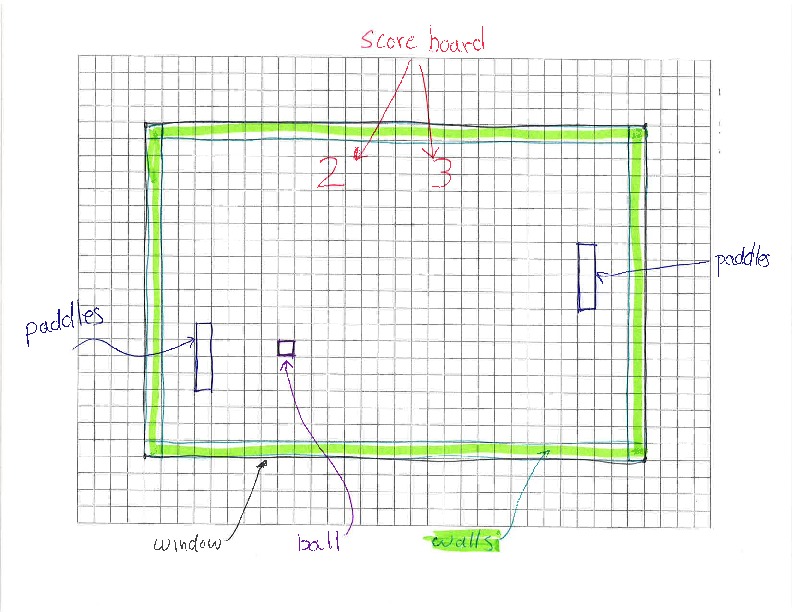 Score board
2 3
paddles
paddles
window
ball
walls